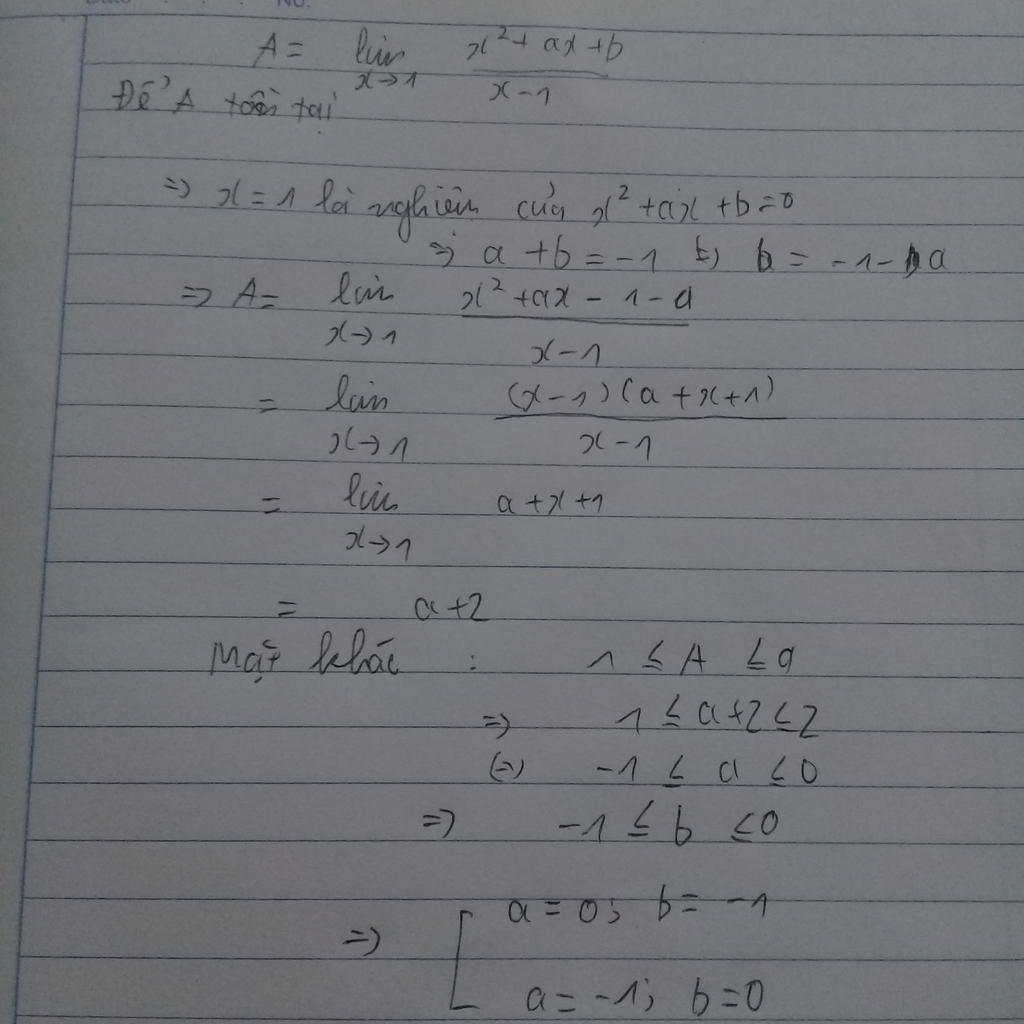 No.
A = lim x²+ax+b
x→1 x-1
Để A tồn tại
=> x=1 là nghiệm của x²+ax+b=0
=> a+b=-1 (=) b = -1-a
=> A= lim x²+ax-1-a
x→1 x-1
= lim (x-1)(a+x+1)
x→1 x-1
= lim a+x+1
x→1
= a+2
Mặt khác : 1 ≤ A ≤ 9
=> 1 ≤ a+2 ≤ 2
(=) -1 ≤ a ≤ 0
=> -1 ≤ b ≤ 0
=> [ a=0; b=-1
a=-1; b=0